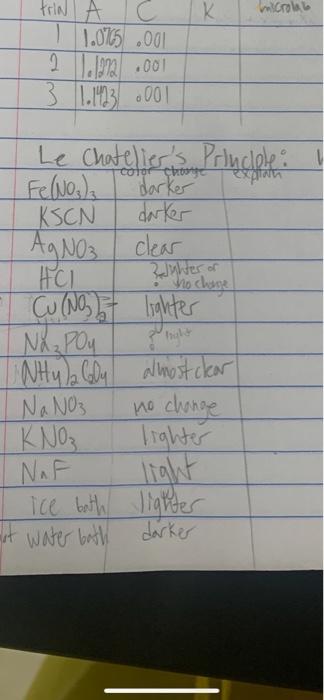 trial A C K microlab
1 1.0765 .001
2 .001
3 1.1423 .001
Le Chatelier's Principle:
color change explain
Fe(NO3)3 darker
KSCN darker
AgNO3 clear
HCl ? lighter or no change
Cu(NO3)2 lighter
Na3PO4 ? light
almost clear
NaNO3 no change
KNO3 lighter
NaF light
ice bath lighter
water bath darker